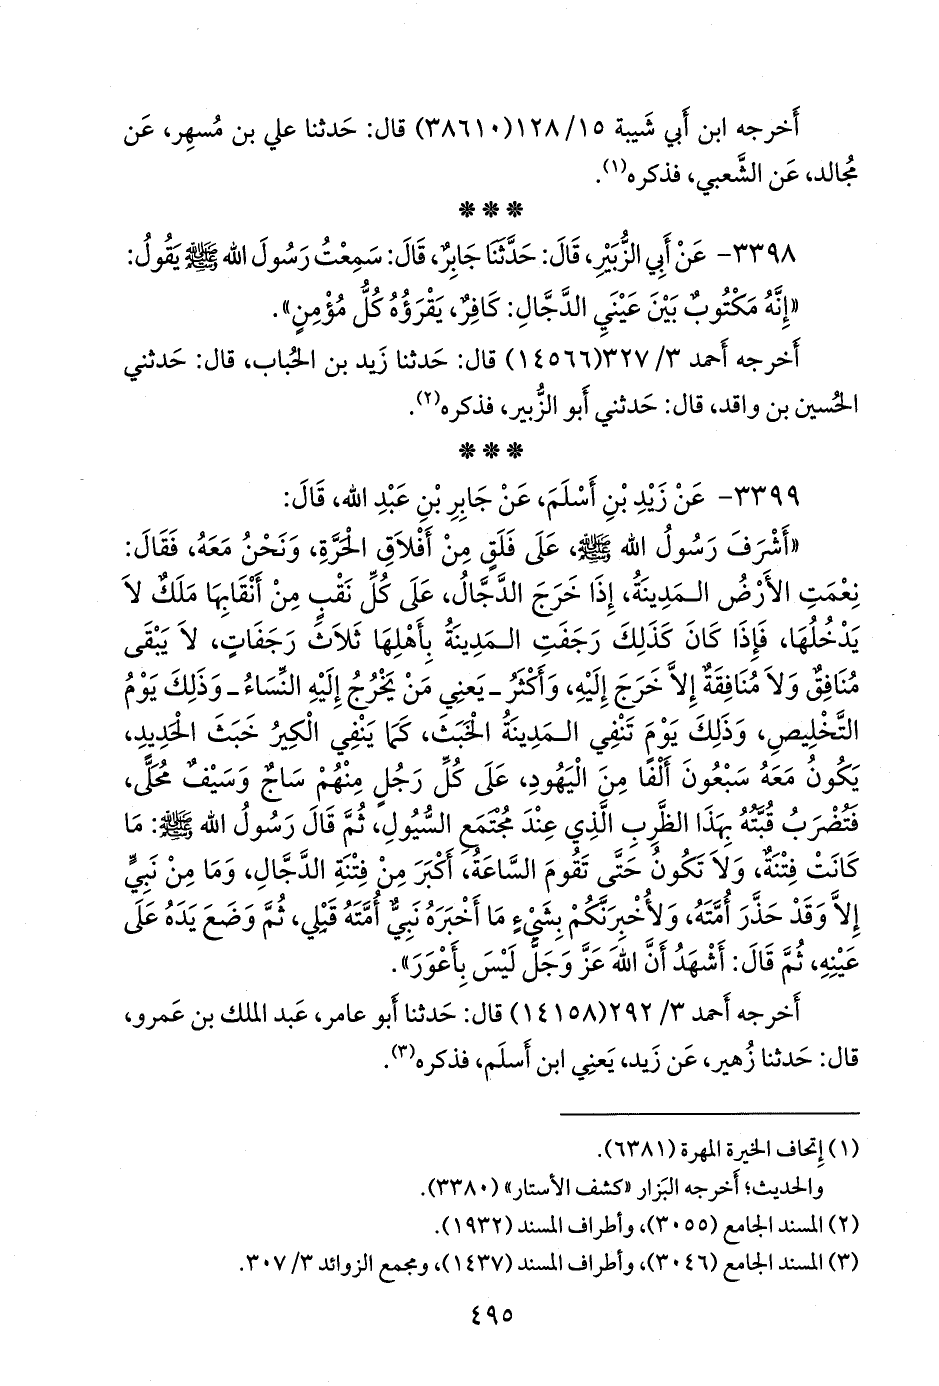 أَخرجه ابن أَبي شَيبة ١٥/ ١٢٨(٣٨٦١٠) قال: حَدثنا علي بن مُسهِر، عَن
مُجالد، عَن الشَّعبي، فذكره(١).
***
٣٣٩٨- عَنْ أَبِي الزُّبَيْرِ، قَالَ: حَدَّثَنَا جَابِرٌ، قَالَ: سَمِعْتُ رَسُولَ الله ﷺ يَقُولُ:
«إِنَّهُ مَكْتُوبٌ بَيْنَ عَيْنَيِ الدَّجَّالِ: كَافِرٌ، يَقْرَؤُهُ كُلُّ مُؤْمِنٍ».
أَخرجه أَحمد ٣/ ٣٢٧(١٤٥٦٦) قال: حَدثنا زَيد بن الحُباب، قال: حَدثني
الحُسين بن واقد، قال: حَدثني أَبو الزُّبير، فذكره(٢).
***
٣٣٩٩- عَنْ زَيْدِ بْنِ أَسْلَمَ، عَنْ جَابِرِ بْنِ عَبْدِ الله، قَالَ:
«أَشْرَفَ رَسُولُ الله ﷺ، عَلَى فَلَقٍ مِنْ أَفْلاَقِ الْحَرَّةِ، وَنَحْنُ مَعَهُ، فَقَالَ:
نِعْمَتِ الأَرْضُ الـمَدِينَةُ، إِذَا خَرَجَ الدَّجَّالُ، عَلَى كُلِّ نَقْبٍ مِنْ أَنْقَابِهَا مَلَكٌ لاَ
يَدْخُلُهَا، فَإِذَا كَانَ كَذَلِكَ رَجَفَتِ الـمَدِينَةُ بِأَهْلِهَا ثَلاَثَ رَجَفَاتٍ، لاَ يَبْقَى
مُنَافِقٌ وَلاَ مُنَافِقَةٌ إِلاَّ خَرَجَ إِلَيْهِ، وَأَكْثَرُ ـ يَعنِي مَنْ يَخْرُجُ إِلَيْهِ النِّسَاءُ ـ وَذَلِكَ يَوْمُ
التَّخْلِيصِ، وَذَلِكَ يَوْمَ تَنْفِي الـمَدِينَةُ الْخَبَثَ، كَمَا يَنْفِي الْكِيرُ خَبَثَ الْحَدِيدِ،
يَكُونُ مَعَهُ سَبْعُونَ أَلْفًا مِنَ الْيَهُودِ، عَلَى كُلِّ رَجُلٍ مِنْهُمْ سَاجٌ وَسَيْفٌ مُحَلًّى،
فَتُضْرَبُ قُبَّتُهُ بِهَذَا الظَّرِبِ الَّذِي عِنْدَ مُجْتَمَعِ السُّيُولِ، ثُمَّ قَالَ رَسُولُ الله ﷺ: مَا
كَانَتْ فِتْنَةٌ، وَلاَ تَكُونُ حَتَّى تَقُومَ السَّاعَةُ، أَكْبَرَ مِنْ فِتْنَةِ الدَّجَّالِ، وَمَا مِنْ نَبِيٍّ
إِلاَّ وَقَدْ حَذَّرَ أُمَّتَهُ، وَلأُخْبِرَنَّكُمْ بِشَيْءٍ مَا أَخْبَرَهُ نَبِيٌّ أُمَّتَهُ قَبْلِي، ثُمَّ وَضَعَ يَدَهُ عَلَى
عَيْنِهِ، ثُمَّ قَالَ: أَشْهَدُ أَنَّ اللهَ عَزَّ وَجَلَّ لَيْسَ بِأَعْوَرَ».
أَخرجه أَحمد ٣/ ٢٩٢(١٤١٥٨) قال: حَدثنا أَبو عامر، عَبد الملك بن عَمرو،
قال: حَدثنا زُهير، عَن زَيد، يَعنِي ابن أَسلَم، فذكره(٣).
(١) إِتحاف الخيرة المهرة (٦٣٨١).
والحديث؛ أَخرجه البَزار «كشف الأستار» (٣٣٨٠).
(٢) المسند الجامع (٣٠٥٥)، وأطراف المسند (١٩٣٢).
(٣) المسند الجامع (٣٠٤٦)، وأطراف المسند (١٤٣٧)، ومجمع الزوائد ٣/ ٣٠٧.
٤٩٥